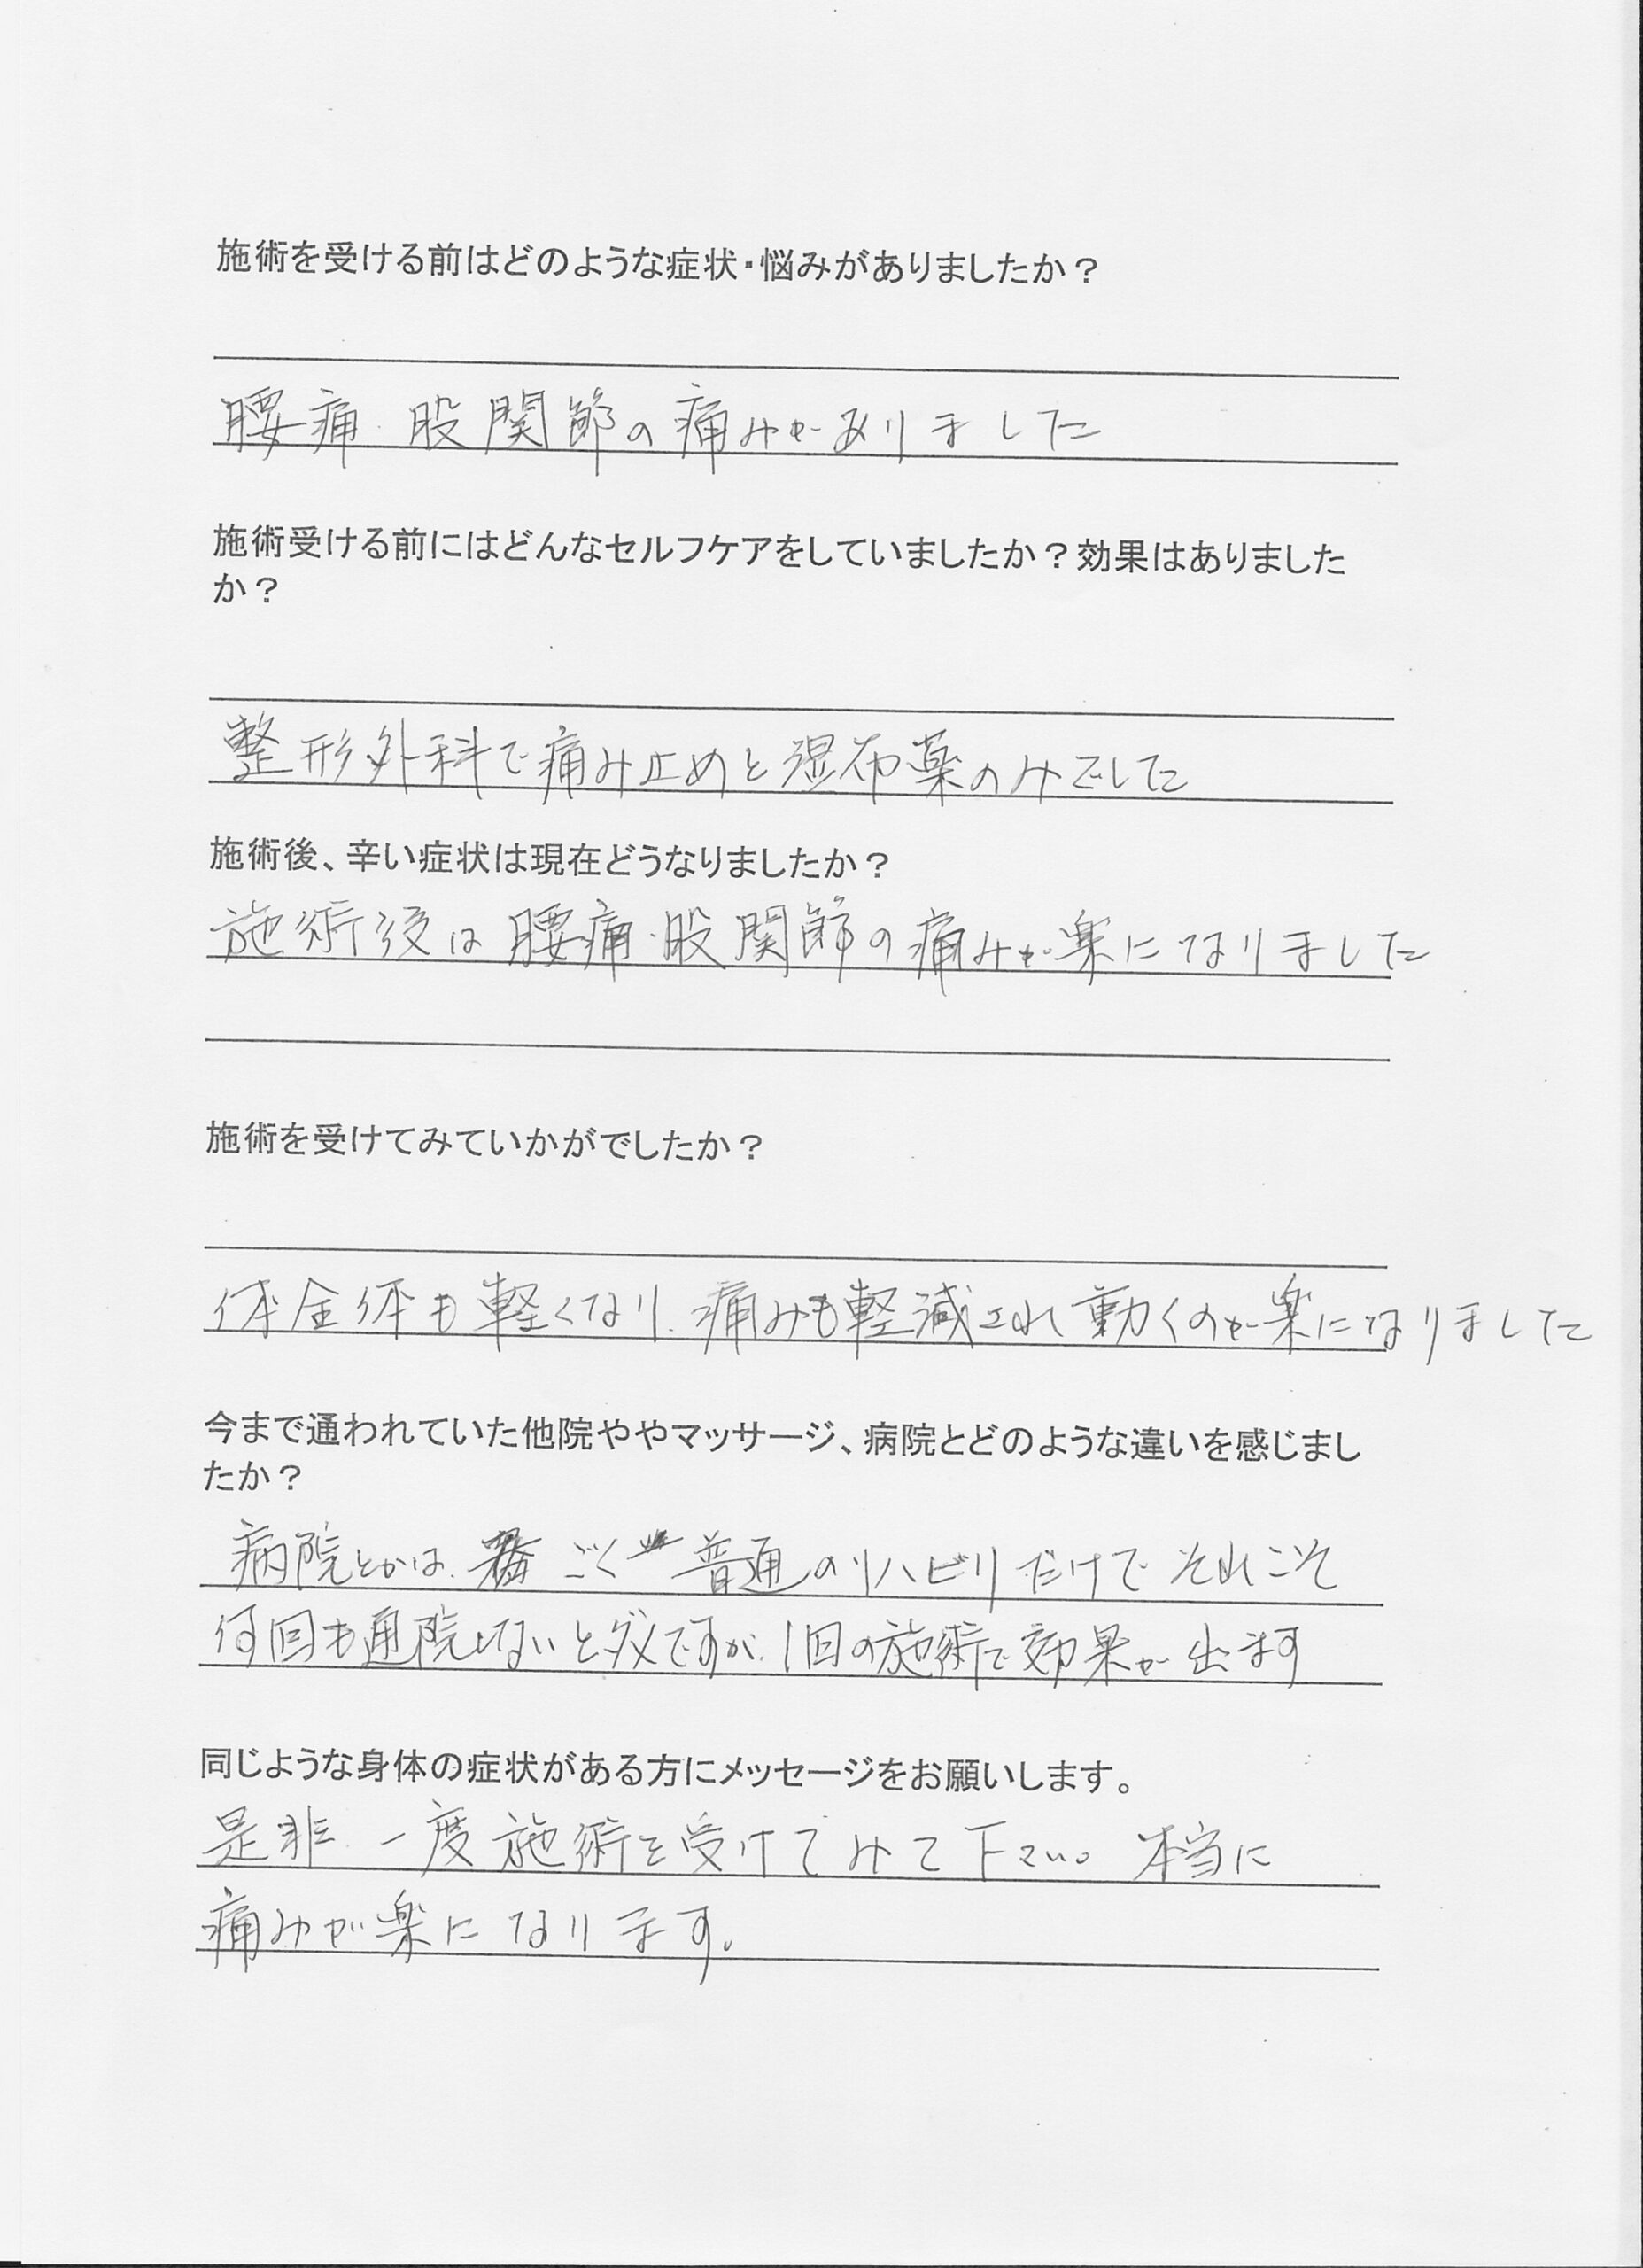 施術を受ける前はどのような症状・悩みがありましたか？
腰痛・股関節の痛みがありました
施術受ける前にはどんなセルフケアをしていましたか？効果はありました
か？
整形外科で痛み止めと湿布薬のみでした
施術後、辛い症状は現在どうなりましたか？
施術後は腰痛・股関節の痛みが楽になりました
施術を受けてみていかがでしたか？
体全体も軽くなり、痛みも軽減され動くのが楽になりました
今まで通われていた他院ややマッサージ、病院とどのような違いを感じまし
たか？
病院とかは、ごく普通のリハビリだけでそれこそ
何回も通院しないとダメですが、1回の施術で効果が出ます
同じような身体の症状がある方にメッセージをお願いします。
是非一度施術を受けてみて下さい。本当に
痛みが楽になります。